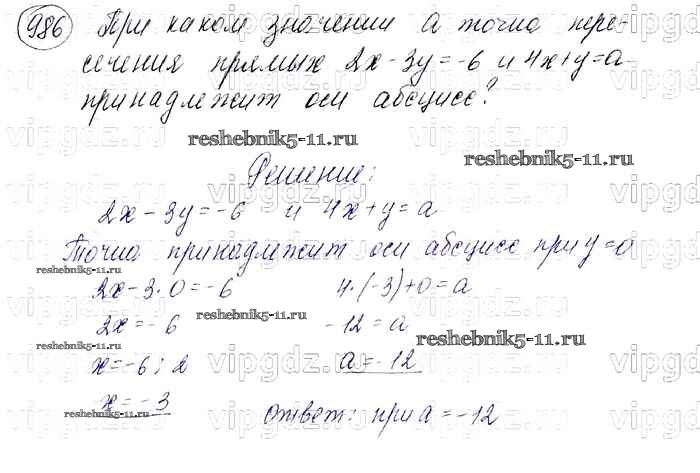 986 При каком значении а точка пере-
сечения прямых 2x - 3y = -6 и 4x + y = a
принадлежит оси абсцисс?
reshebnik5-11.ru
reshebnik5-11.ru
Решение:
2x - 3y = -6 и 4x + y = a
Точка принадлежит оси абсцисс при y = 0
reshebnik5-11.ru
2x - 3 · 0 = -6 4 · (-3) + 0 = a
reshebnik5-11.ru
2x = -6 -12 = a
reshebnik5-11.ru
reshebnik5-11.ru
x = -6 : 2 a = -12
x = -3
reshebnik5-11.ru
Ответ: при a = -12
vipgdz.ru